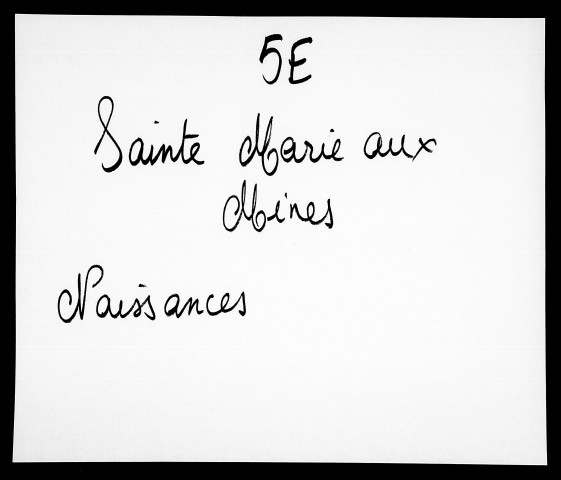 5E
Sainte Marie aux
Mines
Naissances